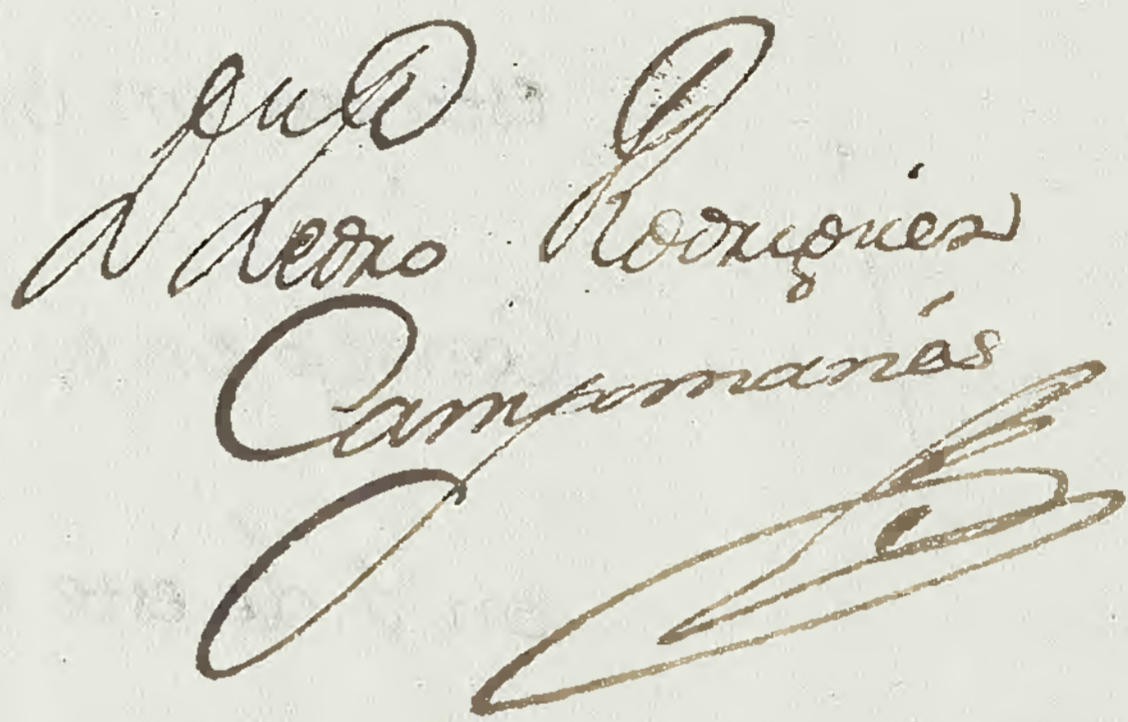 Pedro Rodriguez
Campomanés